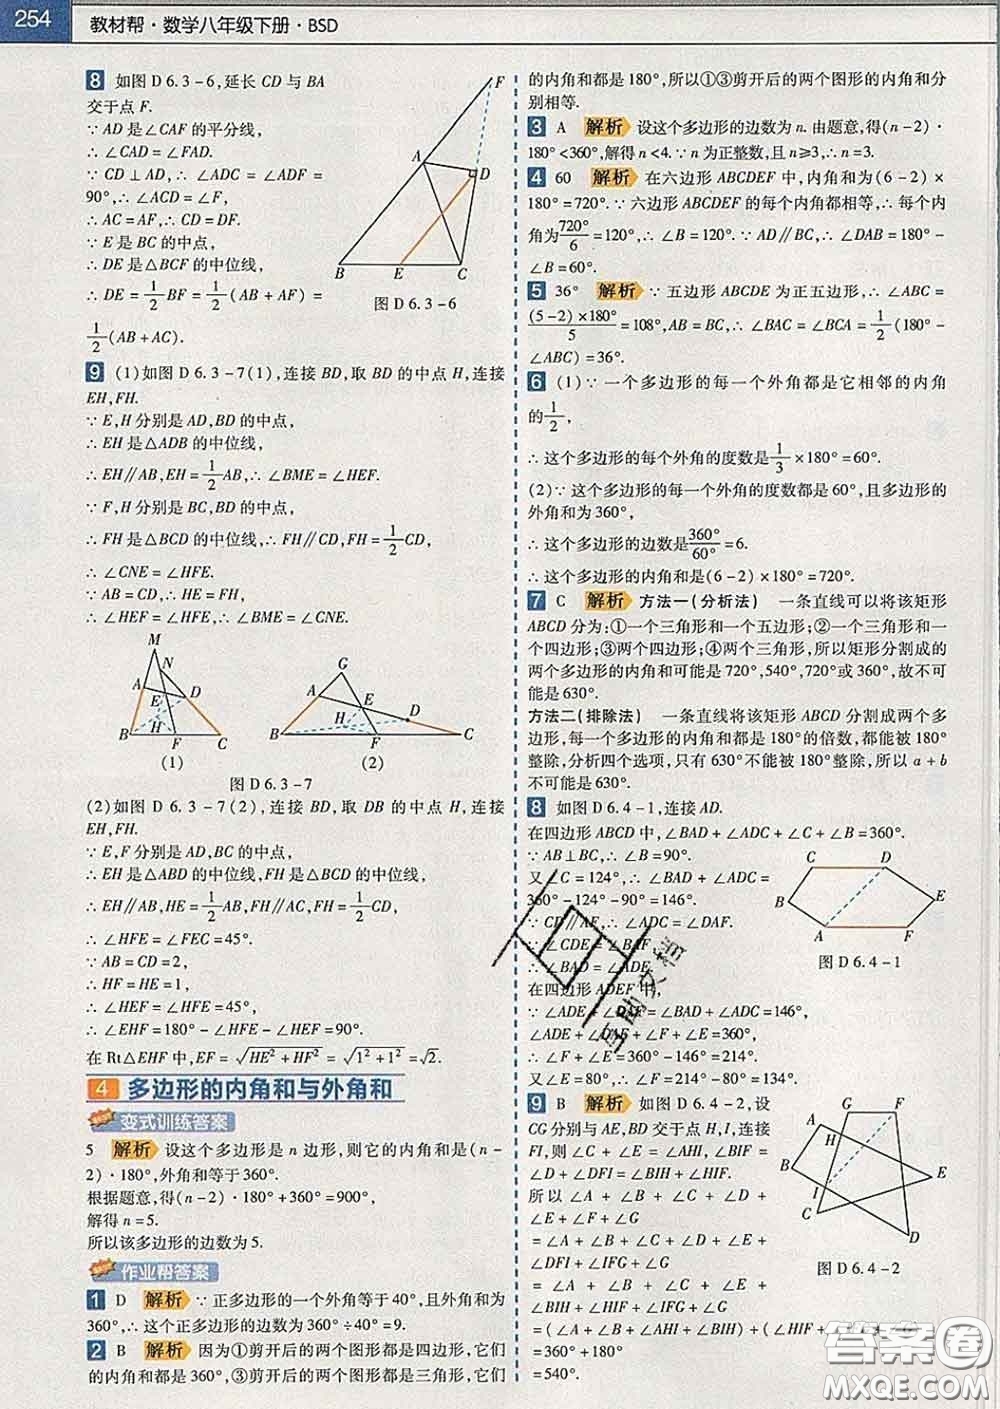 254
教材帮·数学八年级下册·BSD
8 如图 D 6.3-6,延长 CD 与 BA
交于点 F.
∵ AD 是∠CAF 的平分线,
∴ ∠CAD = ∠FAD.
∵ CD ⊥ AD,∴ ∠ADC = ∠ADF =
90°,∴ ∠ACD = ∠F,
∴ AC = AF,∴ CD = DF.
∵ E 是 BC 的中点,
∴ DE 是△BCF 的中位线,
∴ DE = 1/2 BF = 1/2 (AB + AF) =
1/2 (AB + AC).
F
A
D
B E C
图 D 6.3-6
9 (1)如图 D 6.3-7(1),连接 BD,取 BD 的中点 H,连接
EH,FH.
∵ E,H 分别是 AD,BD 的中点,
∴ EH 是△ADB 的中位线,
∴ EH∥AB,EH = 1/2 AB,∴ ∠BME = ∠HEF.
∵ F,H 分别是 BC,BD 的中点,
∴ FH 是△BCD 的中位线,∴ FH∥CD,FH = 1/2 CD,
∴ ∠CNE = ∠HFE.
∵ AB = CD,∴ HE = FH,
∴ ∠HEF = ∠HFE,∴ ∠BME = ∠CNE.
M
N
A
E
D
H
B F C
(1)
G
A
E
D
H
B F C
(2)
图 D 6.3-7
(2)如图 D 6.3-7(2),连接 BD,取 DB 的中点 H,连接
EH,FH.
∵ E,F 分别是 AD,BC 的中点,
∴ EH 是△ABD 的中位线,FH 是△BCD 的中位线,
∴ EH∥AB,HE = 1/2 AB,FH∥AC,FH = 1/2 CD,
∴ ∠HFE = ∠FEC = 45°.
∵ AB = CD = 2,
∴ HF = HE = 1,
∴ ∠HEF = ∠HFE = 45°,
∴ ∠EHF = 180° - ∠HFE - ∠HEF = 90°.
在 Rt△EHF 中,EF = √(HE² + HF²) = √(1² + 1²) = √2.
4 多边形的内角和与外角和
变式训练答案
5 解析 设这个多边形是 n 边形,则它的内角和是(n -
2)·180°,外角和等于360°.
根据题意,得(n-2)·180°+360°=900°,
解得 n = 5.
所以该多边形的边数为 5.
作业帮答案
1 D 解析 ∵ 正多边形的一个外角等于 40°,且外角和为
360°,∴ 这个正多边形的边数为 360°÷40° = 9.
2 B 解析 因为①剪开后的两个图形都是四边形,它们
的内角和都是 360°,③剪开后的两个图形都是三角形,它们
的内角和都是 180°,所以①③剪开后的两个图形的内角和分
别相等.
3 A 解析 设这个多边形的边数为 n.由题意,得(n-2)·
180°<360°,解得 n<4.∵ n 为正整数,且 n≥3,∴ n = 3.
4 60 解析 在六边形 ABCDEF 中,内角和为(6-2)×
180°=720°.∵ 六边形 ABCDEF 的每个内角都相等,∴ 每个内
角为720°/6=120°,∴ ∠B = 120°.∵ AD∥BC,∴ ∠DAB = 180° -
∠B = 60°.
5 36° 解析 ∵ 五边形 ABCDE 为正五边形,∴ ∠ABC =
(5-2)×180°/5 = 108°,AB = BC,∴ ∠BAC = ∠BCA = 1/2 (180° -
∠ABC) = 36°.
6 (1)∵ 一个多边形的每一个外角都是它相邻的内角
的1/2,
∴ 这个多边形的每个外角的度数是1/3×180°=60°.
(2)∵ 这个多边形的每一个外角的度数都是 60°,且多边形的
外角和为 360°,
∴ 这个多边形的边数是360°/60°=6.
∴ 这个多边形的内角和是(6-2)×180°=720°.
7 C 解析 方法一(分析法) 一条直线可以将该矩形
ABCD 分为:①一个三角形和一个五边形;②一个三角形和一
个四边形;③两个四边形;④两个三角形,所以矩形分割成的
两个多边形的内角和可能是 720°,540°,720°或 360°,故不可
能是 630°.
方法二(排除法) 一条直线将该矩形 ABCD 分割成两个多
边形,每一个多边形的内角和都是 180°的倍数,都能被 180°
整除,分析四个选项,只有 630°不能被 180°整除,所以 a + b
不可能是 630°.
8 如图 D 6.4-1,连接 AD.
在四边形 ABCD 中,∠BAD + ∠ADC + ∠C + ∠B = 360°.
∵ AB⊥BC,∴ ∠B = 90°.
又∠C = 124°,∴ ∠BAD + ∠ADC =
360° - 124° - 90° = 146°.
∵ CD∥AF,∴ ∠ADC = ∠DAF.
∵ ∠CDE = ∠BAF,
∴ ∠BAD = ∠ADE.
在四边形 ADEF 中,
∵ ∠ADE + ∠DAF = ∠BAD + ∠ADC = 146°,
∠ADE + ∠DAF + ∠F + ∠E = 360°,
∴ ∠F + ∠E = 360° - 146° = 214°.
又∠E = 80°,∴ ∠F = 214° - 80° = 134°.
C D
B E
A F
图 D 6.4-1
9 B 解析 如图 D 6.4-2,设
CG 分别与 AE,BD 交于点 H,I,连接
FI,则∠C + ∠E = ∠AHI,∠BIF =
∠D + ∠DFI = ∠BIH + ∠HIF.
所以 ∠A + ∠B + ∠C + ∠D +
∠E + ∠F + ∠G
= ∠A + ∠B + ∠AHI + ∠D +
∠DFI + ∠GFI + ∠G
= ∠A + ∠B + ∠AHI +
∠BIH + ∠HIF + ∠GFI + ∠G
G F
A
H
B E
I
C
D
图 D 6.4-2
= (∠A + ∠B + ∠AHI + ∠BIH) + (∠HIF +
= 360° + 180°
= 540°.
答案圈
MXQE.COM